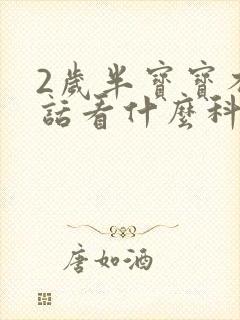 2歲半寶寶不
話看什麼科
唐如酒